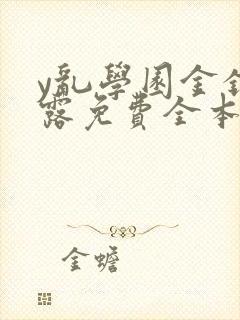 y乱學園全
露免費全本
金蟾